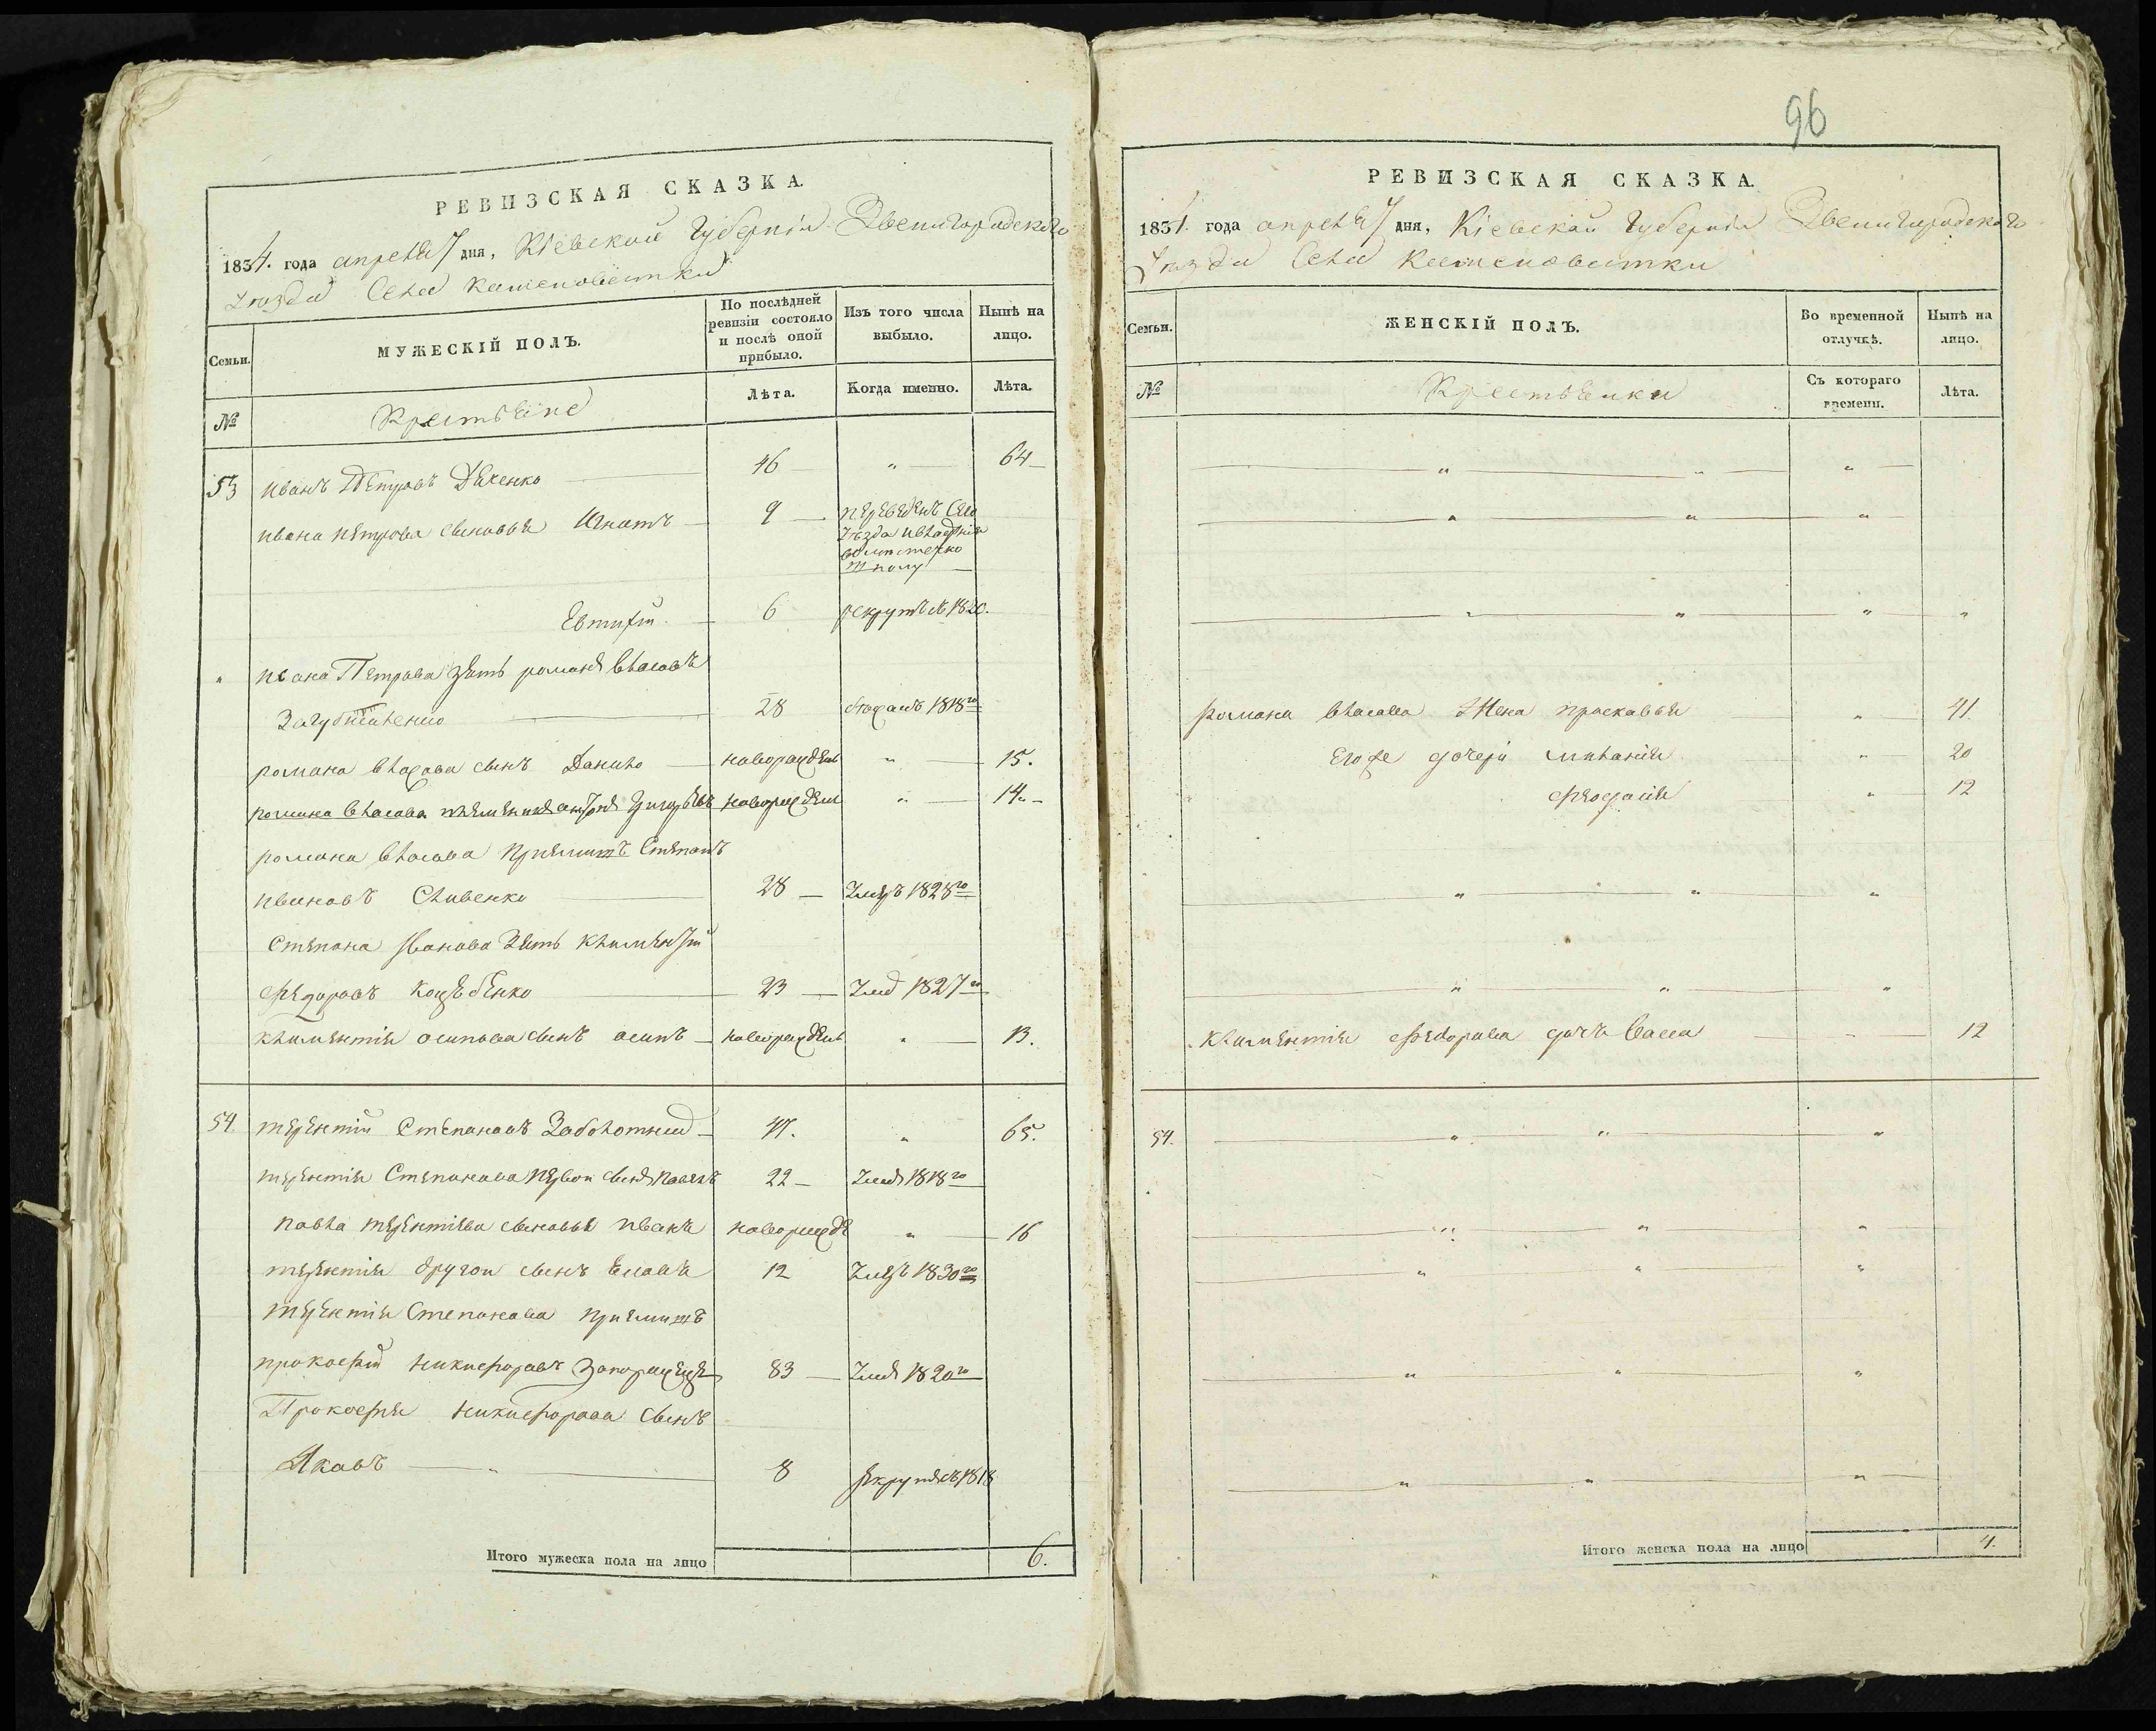 РЕВИЗСКАЯ СКАЗКА.
1834. года апреля 7 дня, Кіевской Губерніи Звенигородского
уезда Села
Семьи.
МУЖЕСКІЙ ПОЛЪ.
По послѣдней ревизіи состояло и послѣ оной прибыло.
Изъ того числа выбыло.
Нынѣ на лицо.
№
Крестьяне
Лѣта.
Когда именно.
Лѣта.
53 Иванъ Петровъ 46 " 64
Ивана Петрова сыновья Игнатъ 9 переведенъ сего
уезда
в местечко
Евтифій 6 рекрутъ въ 1820.
" Ивана Петрова зять романъ власовъ
28 1818го
романа власова сынъ Данило новорожденъ " 15.
романа власова племеникъ антонъ Григорьевъ новорожденъ " 14
романа власова приймитъ Степанъ
ивановъ Сливенко 28 умеръ 1828го
Степана Иванова зять климентій
Федоровъ 23 умеръ 1827го
климентія осипова сынъ осипъ новорожденъ " 13.
54 терентій Степановъ Заболотный 47. " 65.
терентія Степанова первой сынъ павелъ 22 умеръ 1818го
павла терентіева сыновья иванъ новорожде " 16
терентія другой сынъ 12 умеръ 1830го
терентія Степанова приймитъ
прокофій никифоровъ Запорожецъ 83 умеръ 1820го
Прокофія никифорова сынъ
Яковъ " 8 рекрутъ въ 1818
Итого мужеска пола на лицо 6.
96
РЕВИЗСКАЯ СКАЗКА.
1834. года апреля 7 дня, Кіевской Губерніи Звенигородского
уезда Села
Семьи.
ЖЕНСКІЙ ПОЛЪ.
Во временной отлучкѣ.
Нынѣ на лицо.
№
Крестьянки
Съ котораго времени.
Лѣта.
" " "
" " "
" " " "
романа власова жена праскавья " 41
Его же дочери миланія " 20
Феодосія " 12
" " "
" " "
климентія Федорова дочь Васса " 12
54. " " "
" " "
" " "
" " "
" " "
Итого женска пола на лицо 4.